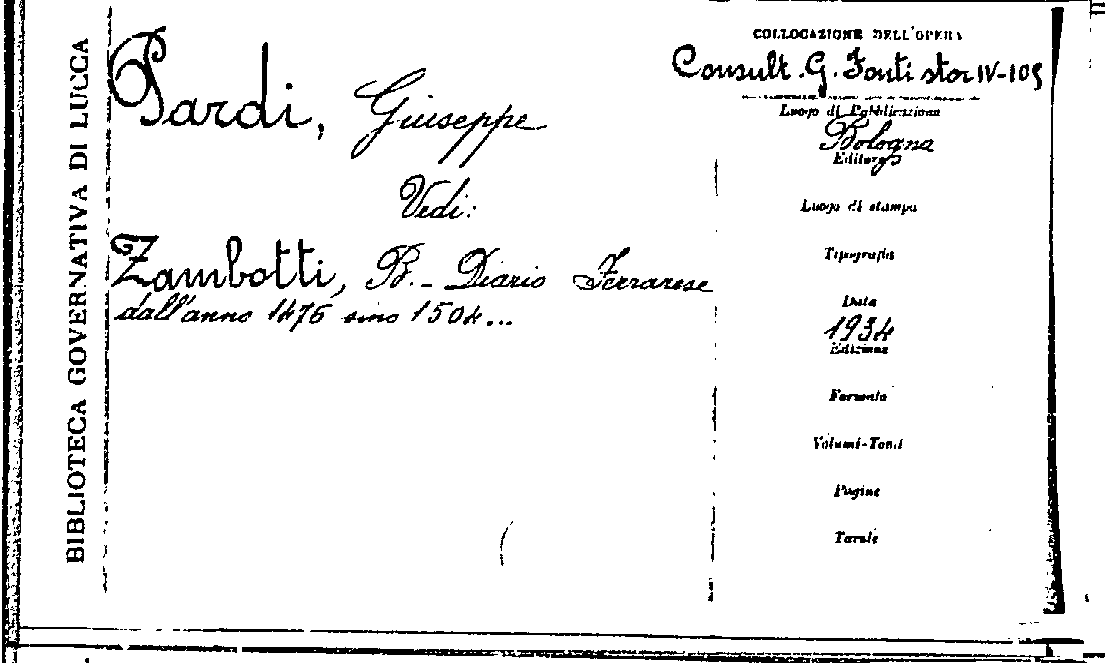 BIBLIOTECA GOVERNATIVA DI LUCCA
Pardi, Giuseppe
Vedi:
Zambotti, B. - Diario Ferrarese
dall'anno 1476 sino 1504...
COLLOCAZIONE DELL'OPERA
Consult. G. Fonti stor IV-105
Luogo di Pubblicazione
Bologna
Editore
Luogo di stampa
Tipografia
Data
1934
Edizione
Formato
Volumi-Tomi
Pagine
Tavole